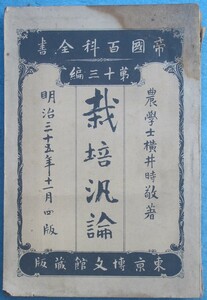 帝國百科全書
第十三編
農學士横井時敬著
栽培汎論
明治三十五年十一月四版
東京博文館蔵版